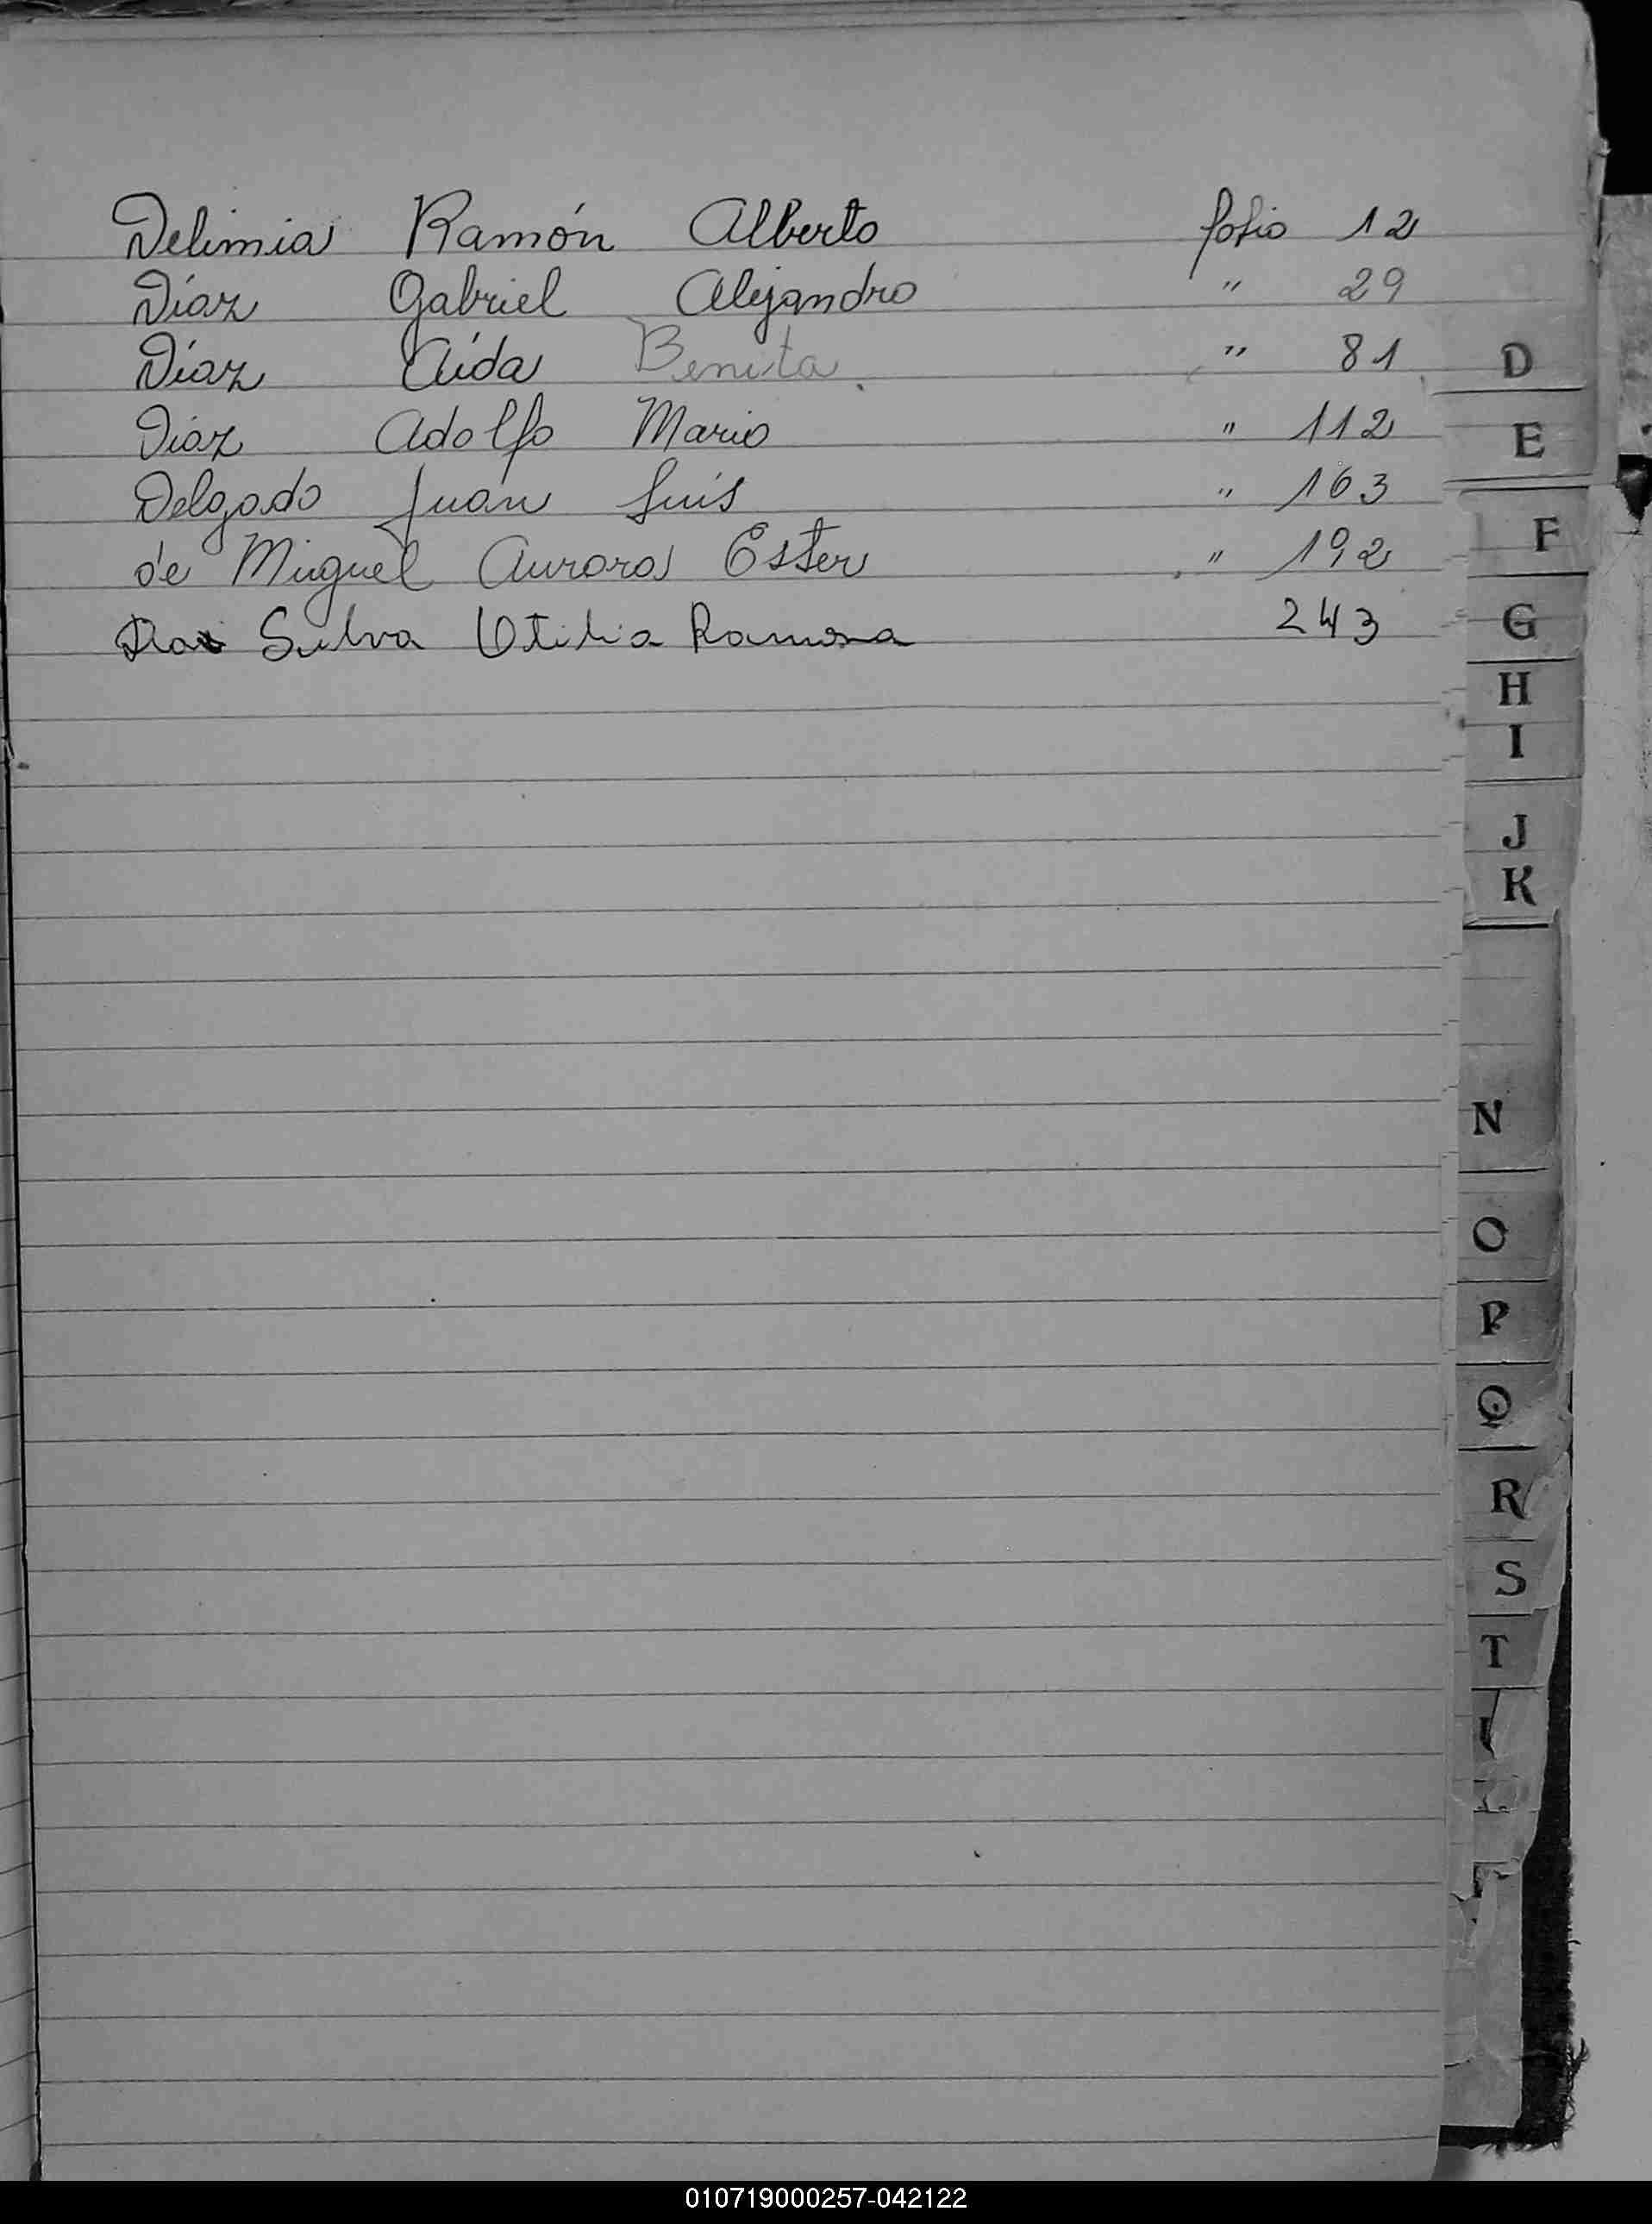 Delimia Ramón Alberto folio 12
Díaz Gabriel Alejandro " 29
Díaz Aída Benita. " 81
Díaz Adolfo Mario " 112
Delgado Juan Luis " 163
de Miguel Aurora Ester " 192
Silva Otilia Ramona 243
D
E
F
G
H
I
J
K
N
O
P
Q
R
S
T
010719000257-042122